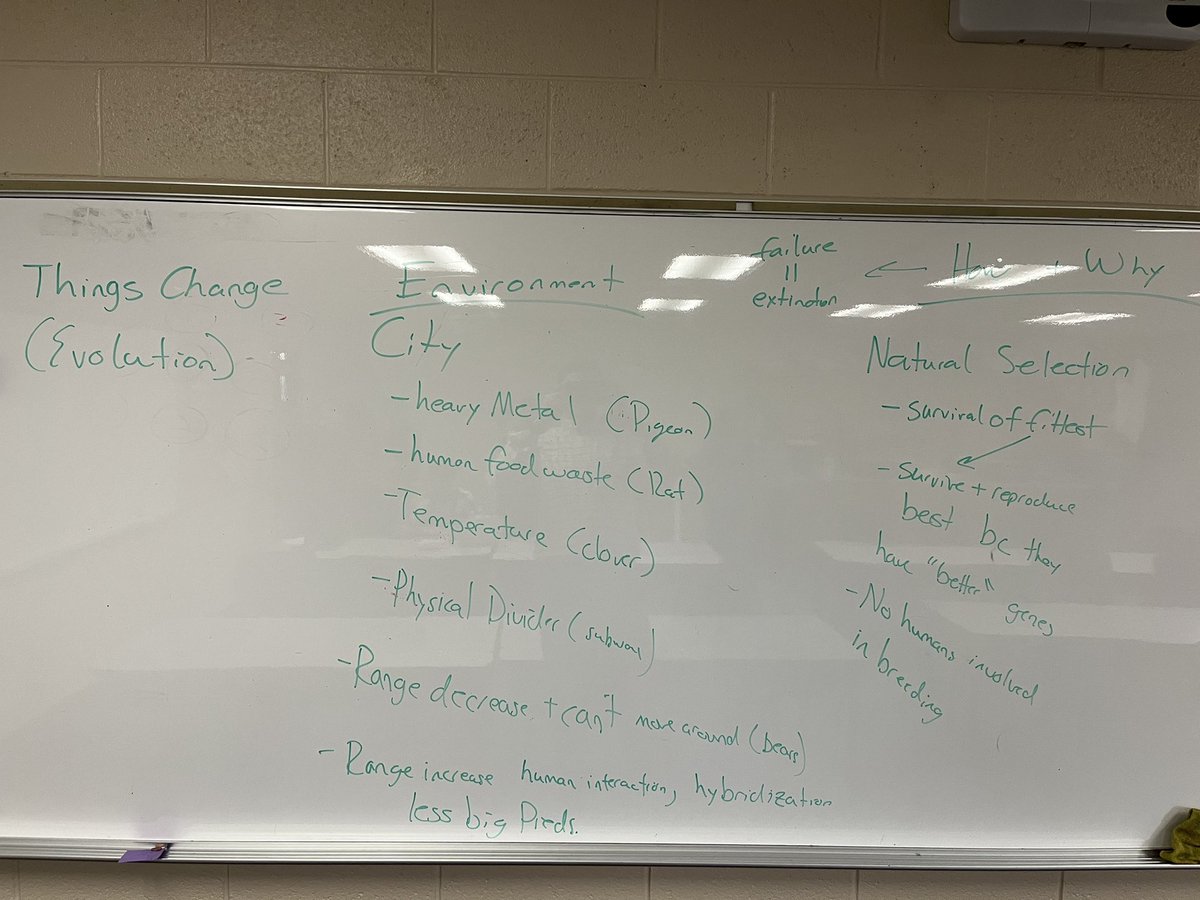 Things Change
(Evolution)
Environment
City
- heavy Metal (Pigeon)
- human food waste (Rat)
- Temperature (clover)
- Physical Divider (subway)
- Range decrease + can't move around (bears)
- Range increase human interaction, hybridization
less big Preds.
failure
=
extinction
← How + Why
Natural Selection
- Survival of fittest
- Survive + reproduce
best bc they
have "better" genes
- No humans involved
in breeding